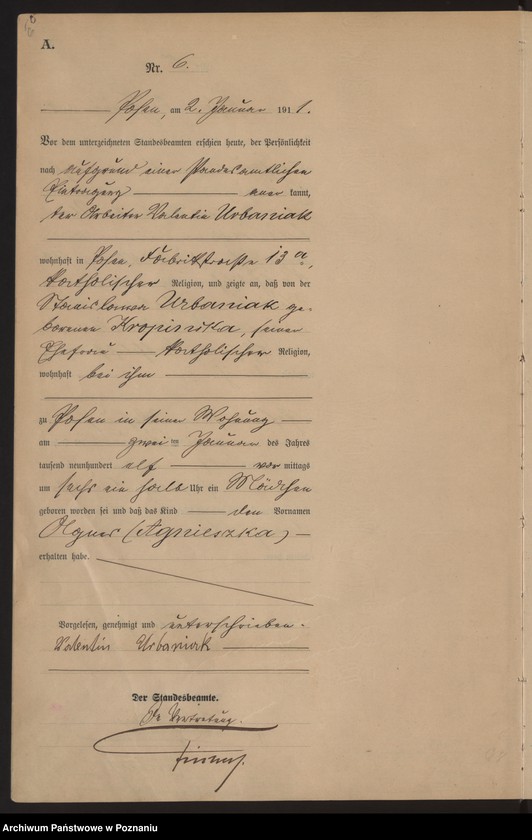 A.
Nr. 6.
Posen, am 2. Januar 1911.
Vor dem unterzeichneten Standesbeamten erschien heute, der Persönlichkeit
nach aufgrund einer standesamtlichen
Eintragung kannt,
der Arbeiter Valentin Urbaniak
wohnhaft in Posen, Fabrikstraße 13a,
katholischer Religion, und zeigte an, daß von der
Stanislawa Urbaniak ge-
borenen Kropinska, seiner
Ehefrau katholischer Religion,
wohnhaft bei ihm
zu Posen in seiner Wohnung
am zwei ten Januar des Jahres
tausend neunhundert elf vor mittags
um sechs ein halb Uhr ein Mädchen
geboren worden sei und daß das Kind den Vornamen
Agnes (Agnieszka)
erhalten habe.
Vorgelesen, genehmigt und unterschrieben.
Valentin Urbaniak
Der Standesbeamte.
In Vertretung.
Archiwum Państwowe w Poznaniu